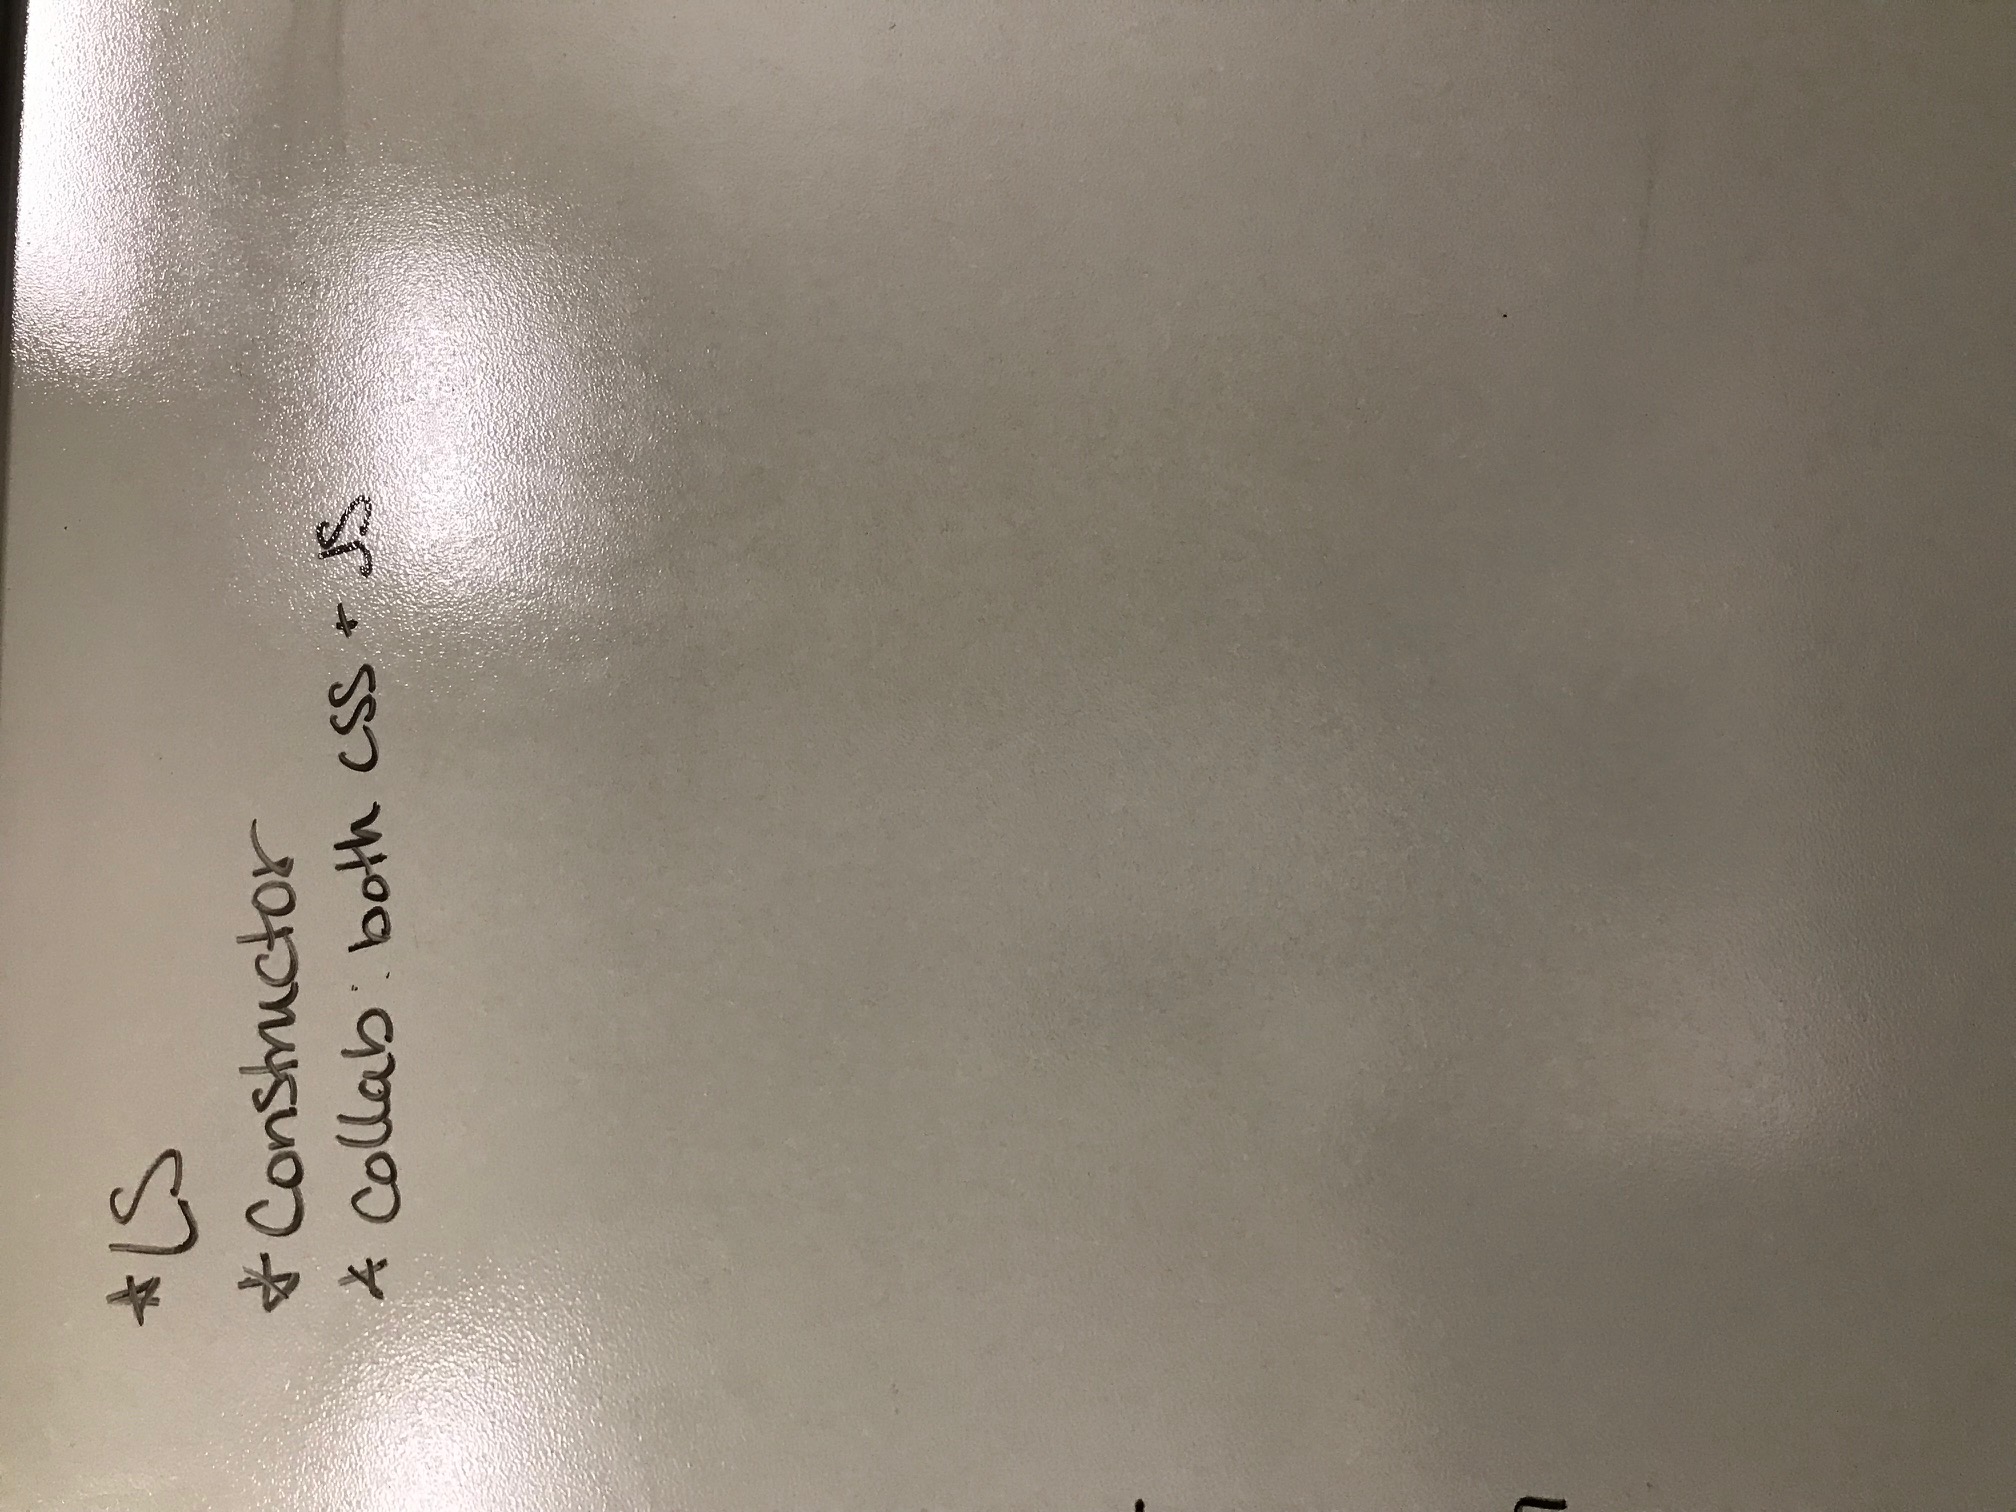 * LS
* Constructor
* Collab: both CSS + JS